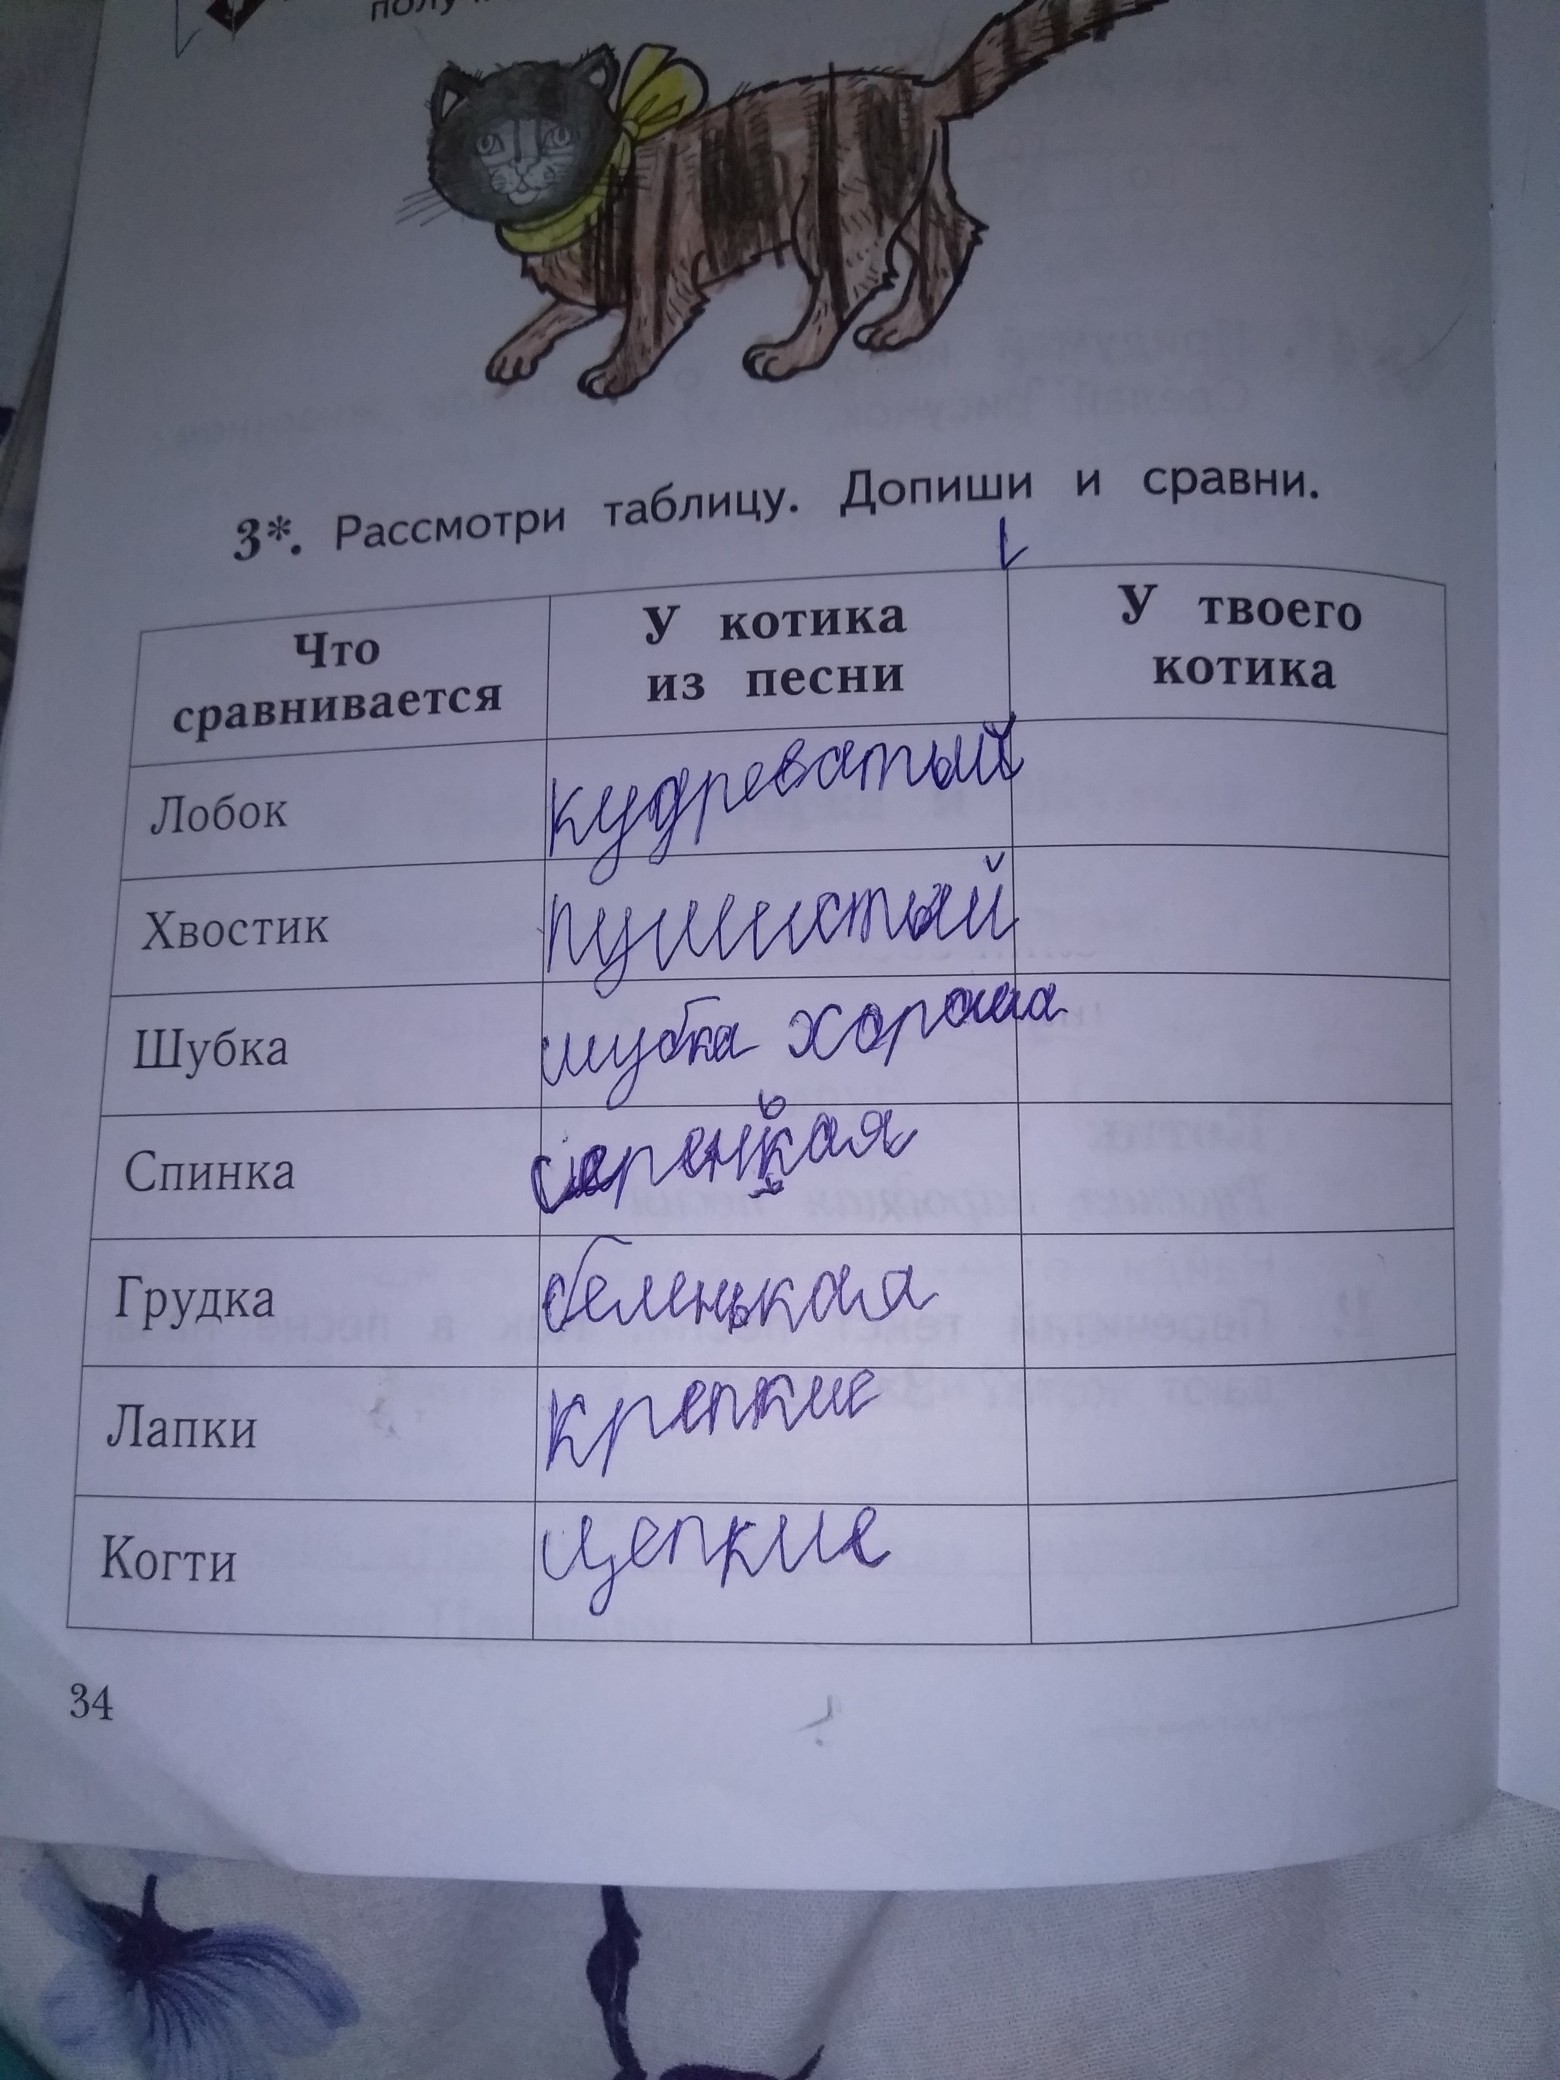 3*. Рассмотри таблицу. Допиши и сравни.
Что сравнивается
У котика из песни
У твоего котика
Лобок
кудреватый
Хвостик
пушистый
Шубка
шубка хороша
Спинка
серенькая
Грудка
беленькая
Лапки
крепкие
Когти
цепкие
34